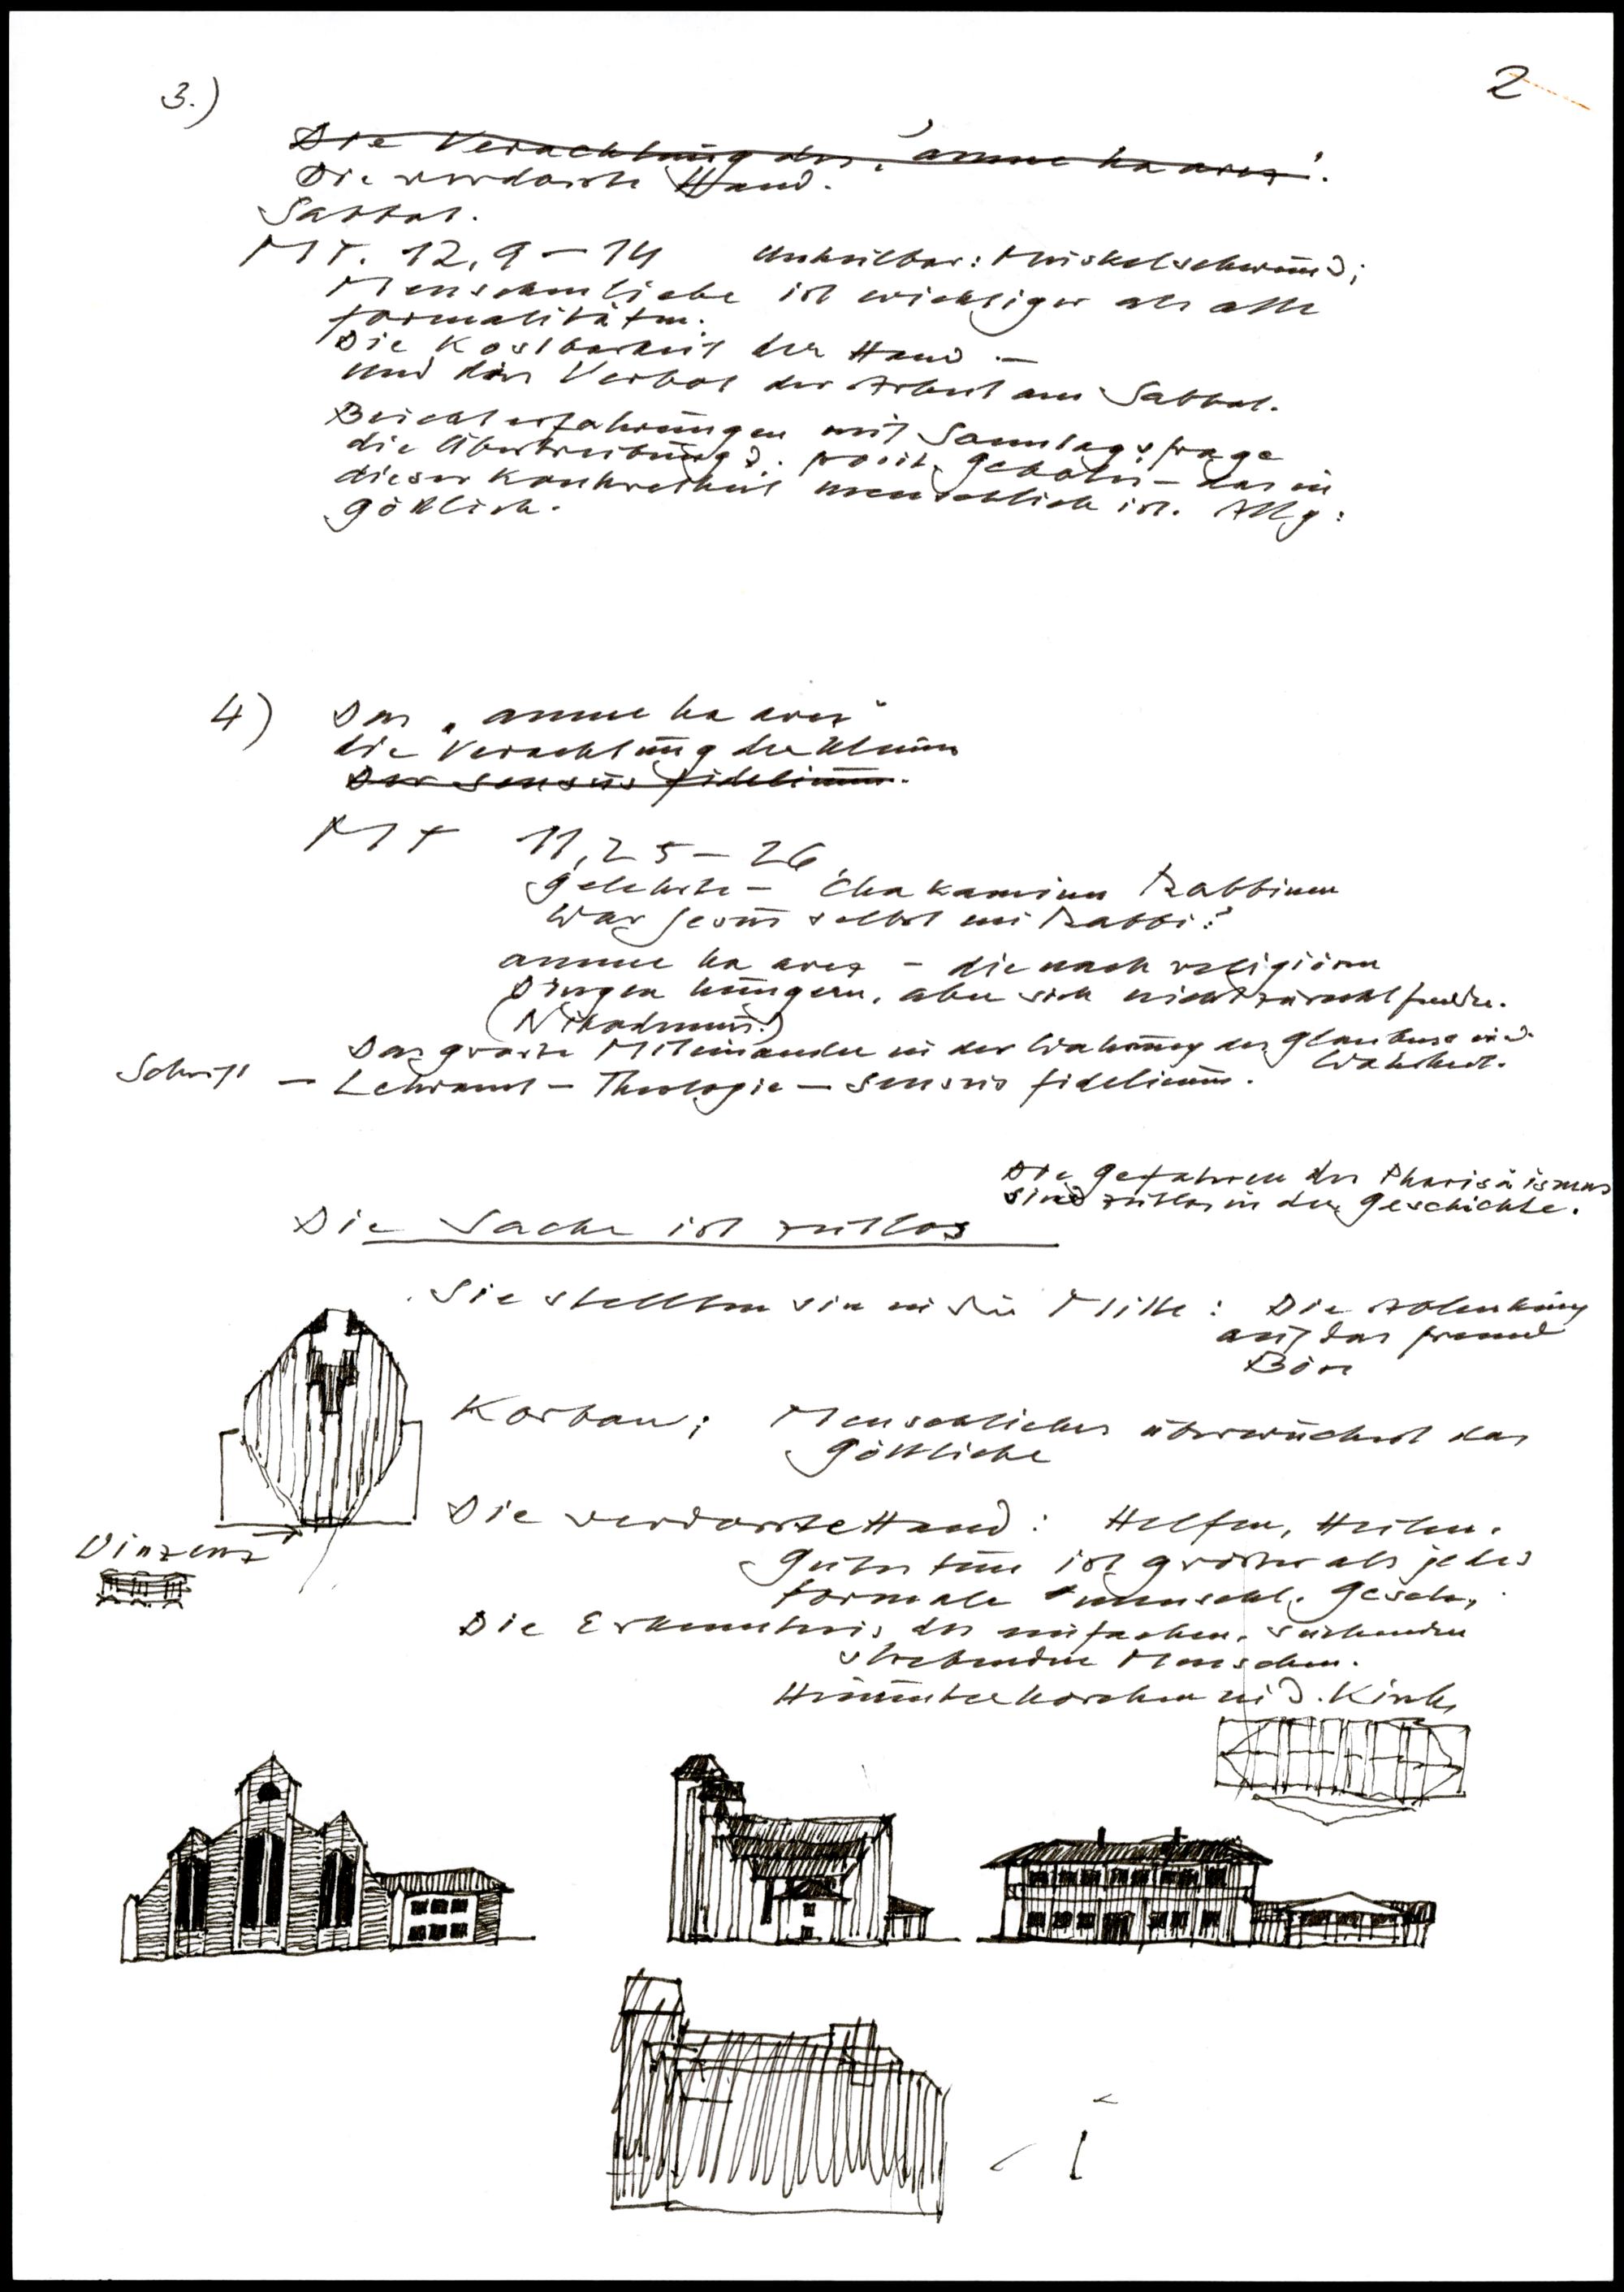 2
3.)
Die Verachtung des "amme ha arez".
Die verdorrte Hand.
Sabbat.
MT. 12, 9 – 14 Unheilbar: Muskelschwund;
Menschenliebe ist wichtiger als alle
Formalitäten.
Die Kostbarkeit der Hand –
und das Verbot der Arbeit am Sabbat.
Beichterfahrungen mit Sonntagsfrage
die Übertreibung d. posit. Gebotes – das in
dieser Konkretheit menschlich ist. Allg:
göttlich.
4) Das "amme ha arez"
die Verachtung der Kleinen
Der sensus fidelium.
MT 11, 25 – 26
Gelehrte – Chakamim Rabbinen
War Jesus selbst ein Rabbi?
amme ha arez – die nach religiösen
Dingen hungern, aber sich nicht zurecht finden.
(Nikodemus.)
Das grosse Miteinander in der Wahrung des Glaubens und
Wahrheit.
Schrift – Lehramt – Theologie – sensus fidelium.
Die Gefahren des Pharisäismus
sind zeitlos in der Geschichte.
Die Sache ist zeitlos
Sie stellten sie in die Mitte: Die Ablenkung
auf das fremde
Böse
Korban: Menschliches überwuchert das
Göttliche
Die verdorrte Hand: Helfen, Heilen.
Vinzenz
Gutes tun ist grösser als jedes
formale menschl. Gesetz.
Die Erkenntnis des einfachen, suchenden
strebenden Menschen.
Hinunterhorchen in d. Kirche